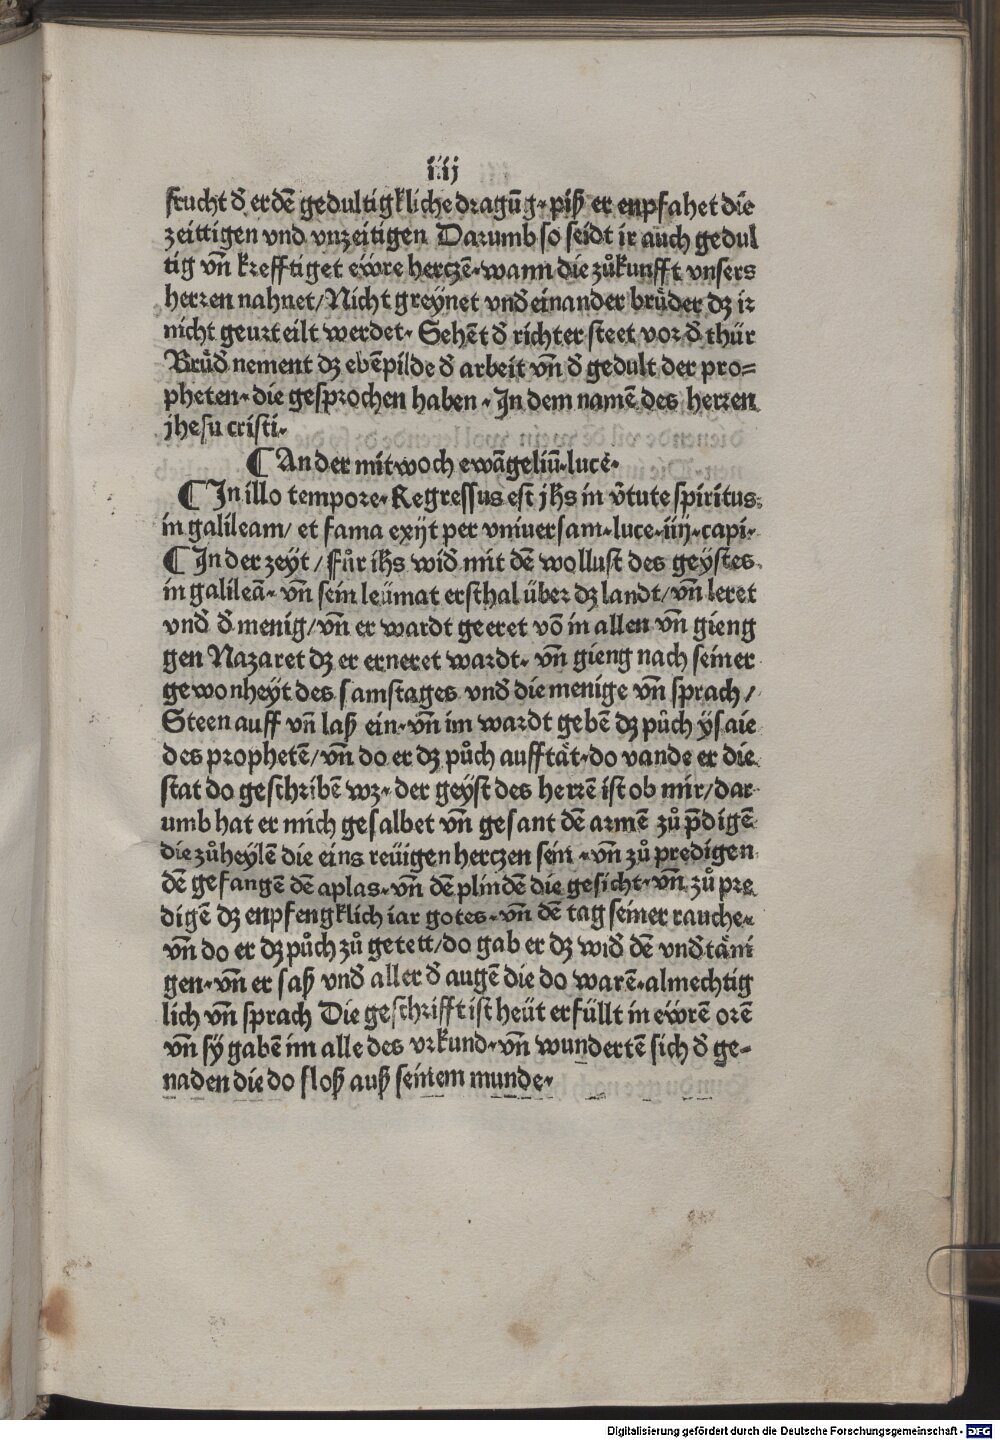 iij
frucht đ erdē gedultigkliche dragūg· piß er enpfahet die
zeittigen vnd vnzeitigen Darumb so seidt ir auch gedul
tig vn̄ krefftiget eẅre herczē·wann die zůkunfft vnsers
herren nahnet/Nicht greÿnet vnđ einander brüder dz ir
nicht geurteilt werdet· Sehēt đ richter steet vor đ thür
Brüđ nement dz ebēpilde đ arbeit vn̄ đ gedult der pro=
pheten·die gesprochen haben·In dem namē des herren
jhesu cristi·
¶ An der mitwoch ewāgeliū·luce·
¶ In illo tempore·Regressus est jhs in v̄tute spiritus
in galileam/ et fama exijt per vniuersam·luce·iiij·capi·
¶ In der zeyt/Fůr ihs wiđ mit dē wollust des geÿstes
in galileā·vn̄ sein leümat ersthal über dz landt/vn̄ leret
vnđ đ menig/vn̄ er wardt geeret vō in allen vn̄ gieng
gen Nazaret dz er erneret wardt·vn̄ gieng nach seiner
gewonheÿt des samstages vnđ die menige vn̄ sprach/
Steen auff vn̄ laß ein·vn̄ im wardt gebē dz půch ÿsaie
des prophetē/vn̄ do er dz půch aufftät·do vande er die
stat do geschribē wz·der geÿst des herrē ist ob mir/dar
umb hat er mich gesalbet vn̄ gesant dē armē zů p̄digē
die zůheylē die eins reüigen herczen sein·vn̄ zů predigen
dē gefangē dē aplas·vn̄ dē plindē die gesicht·vn̄ zů pre
digē dz enpfengklich iar gotes·vn̄ dē tag seiner rauche·
vn̄ do er dz půch zů getett/do gab er dz wiđ dē vnđtäni
gen·vn̄ er saß vnđ aller đ augē die do warē·almechtig
lich vn̄ sprach Die geschrifft ist heüt erfüllt in eẅrē orē
vn̄ sÿ gabē im alle des vrkund·vn̄ wundertē sich đ ge=
naden die do floß auß seinem munde·
Digitalisierung gefördert durch die Deutsche Forschungsgemeinschaft - DFG